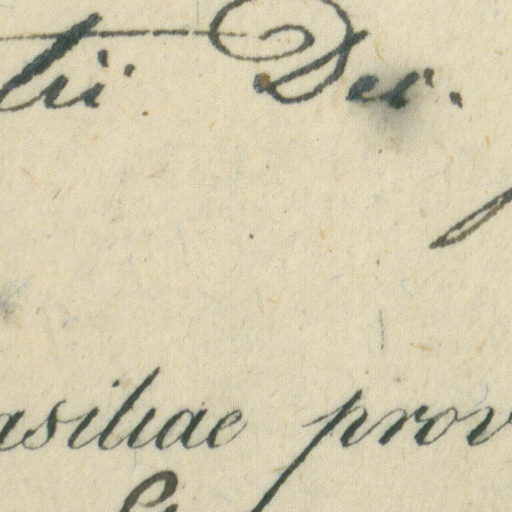 tii Dei.
asiliae prov